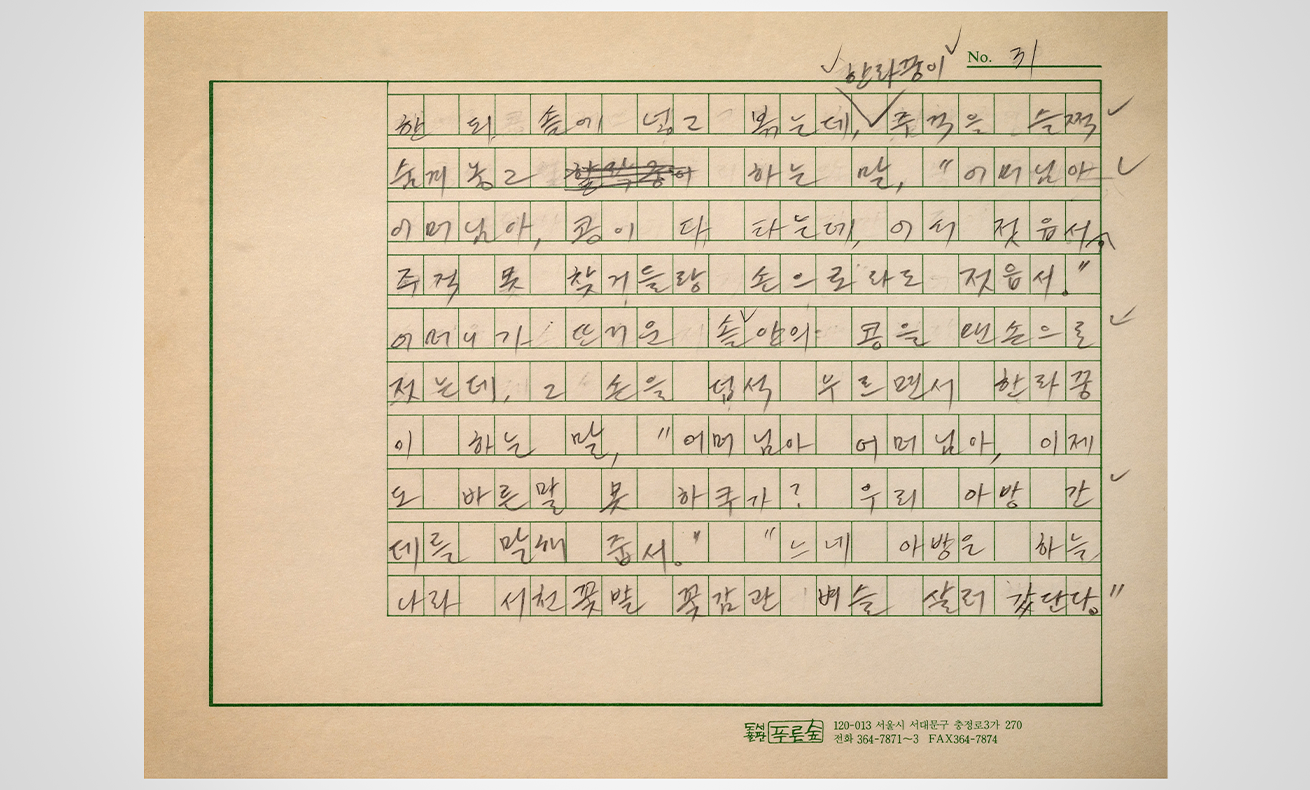 한라궁이
No. 31
한 되 솥에 넣고 볶는데, 주걱을 슬쩍
숨겨 놓고 하는 말, "어머님아
어머님아, 콩이 다 타는데, 어서 젓읍서.
주걱 못 찾거들랑 손으로라도 젓읍서."
어머니가 뜨거운 솥 안의 콩을 맨손으로
젓는데, 그 손을 덥석 누르면서 한라궁
이 하는 말, "어머님아 어머님아, 이제
도 바른말 못 하쿠가? 우리 아방 간
데를 말해 줍서." "느네 아방은 하늘
나라 서천꽃밭 꽃감관 벼슬 살러 갔단다."
도서출판 푸른숲
120-013 서울시 서대문구 충정로3가 270
전화 364-7871~3 FAX364-7874